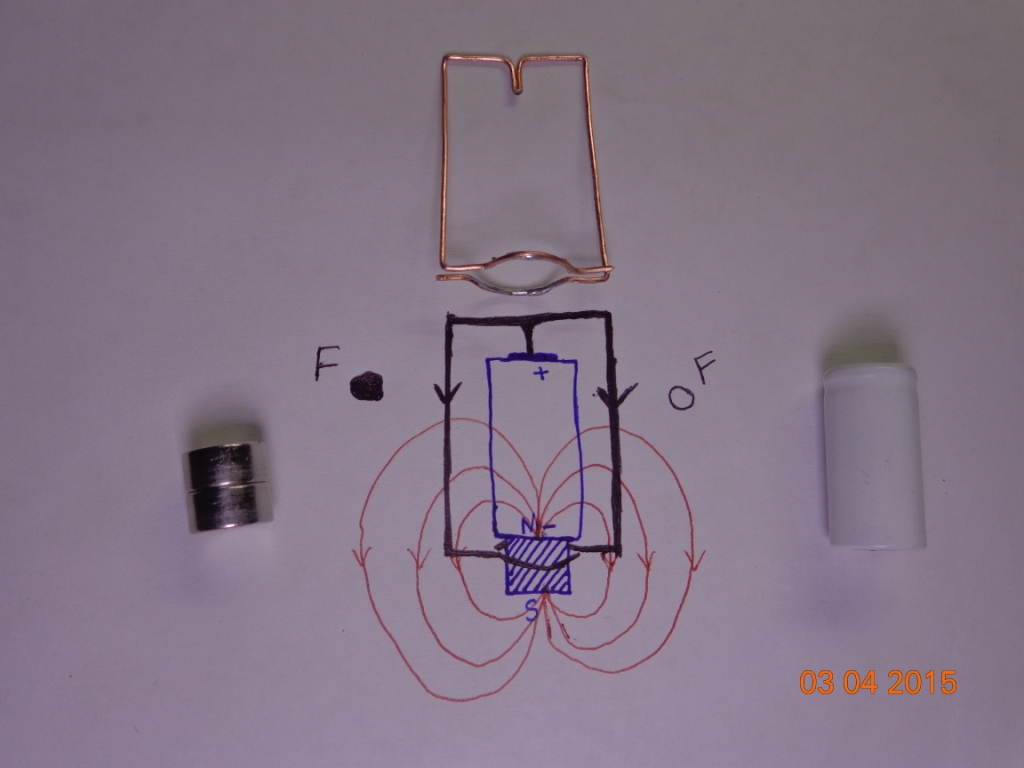 F
F
+
N -
S
03 04 2015